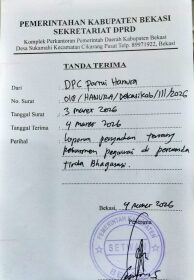 PEMERINTAH KABUPATEN BEKASI
SEKRETARIAT DPRD
Komplek Perkantoran Pemerintah Daerah Kabupaten Bekasi
Desa Sukamahi Kecamatan Cikarang Pusat Telp. 89971922, Bekasi
TANDA TERIMA
Dari DPC Partai Hanura
No. Surat 018/HANURA/DPC.Kab/III/2026
Tanggal Surat 3 maret 2026
Tanggal Terima 4 maret 2026
Perihal laporan pengaduan tentang
rekrutmen pegawai di perumda
tirta Bhagasasi.
Bekasi, 4 maret 2026
Penerima
PEMERINTAH KABUPATEN